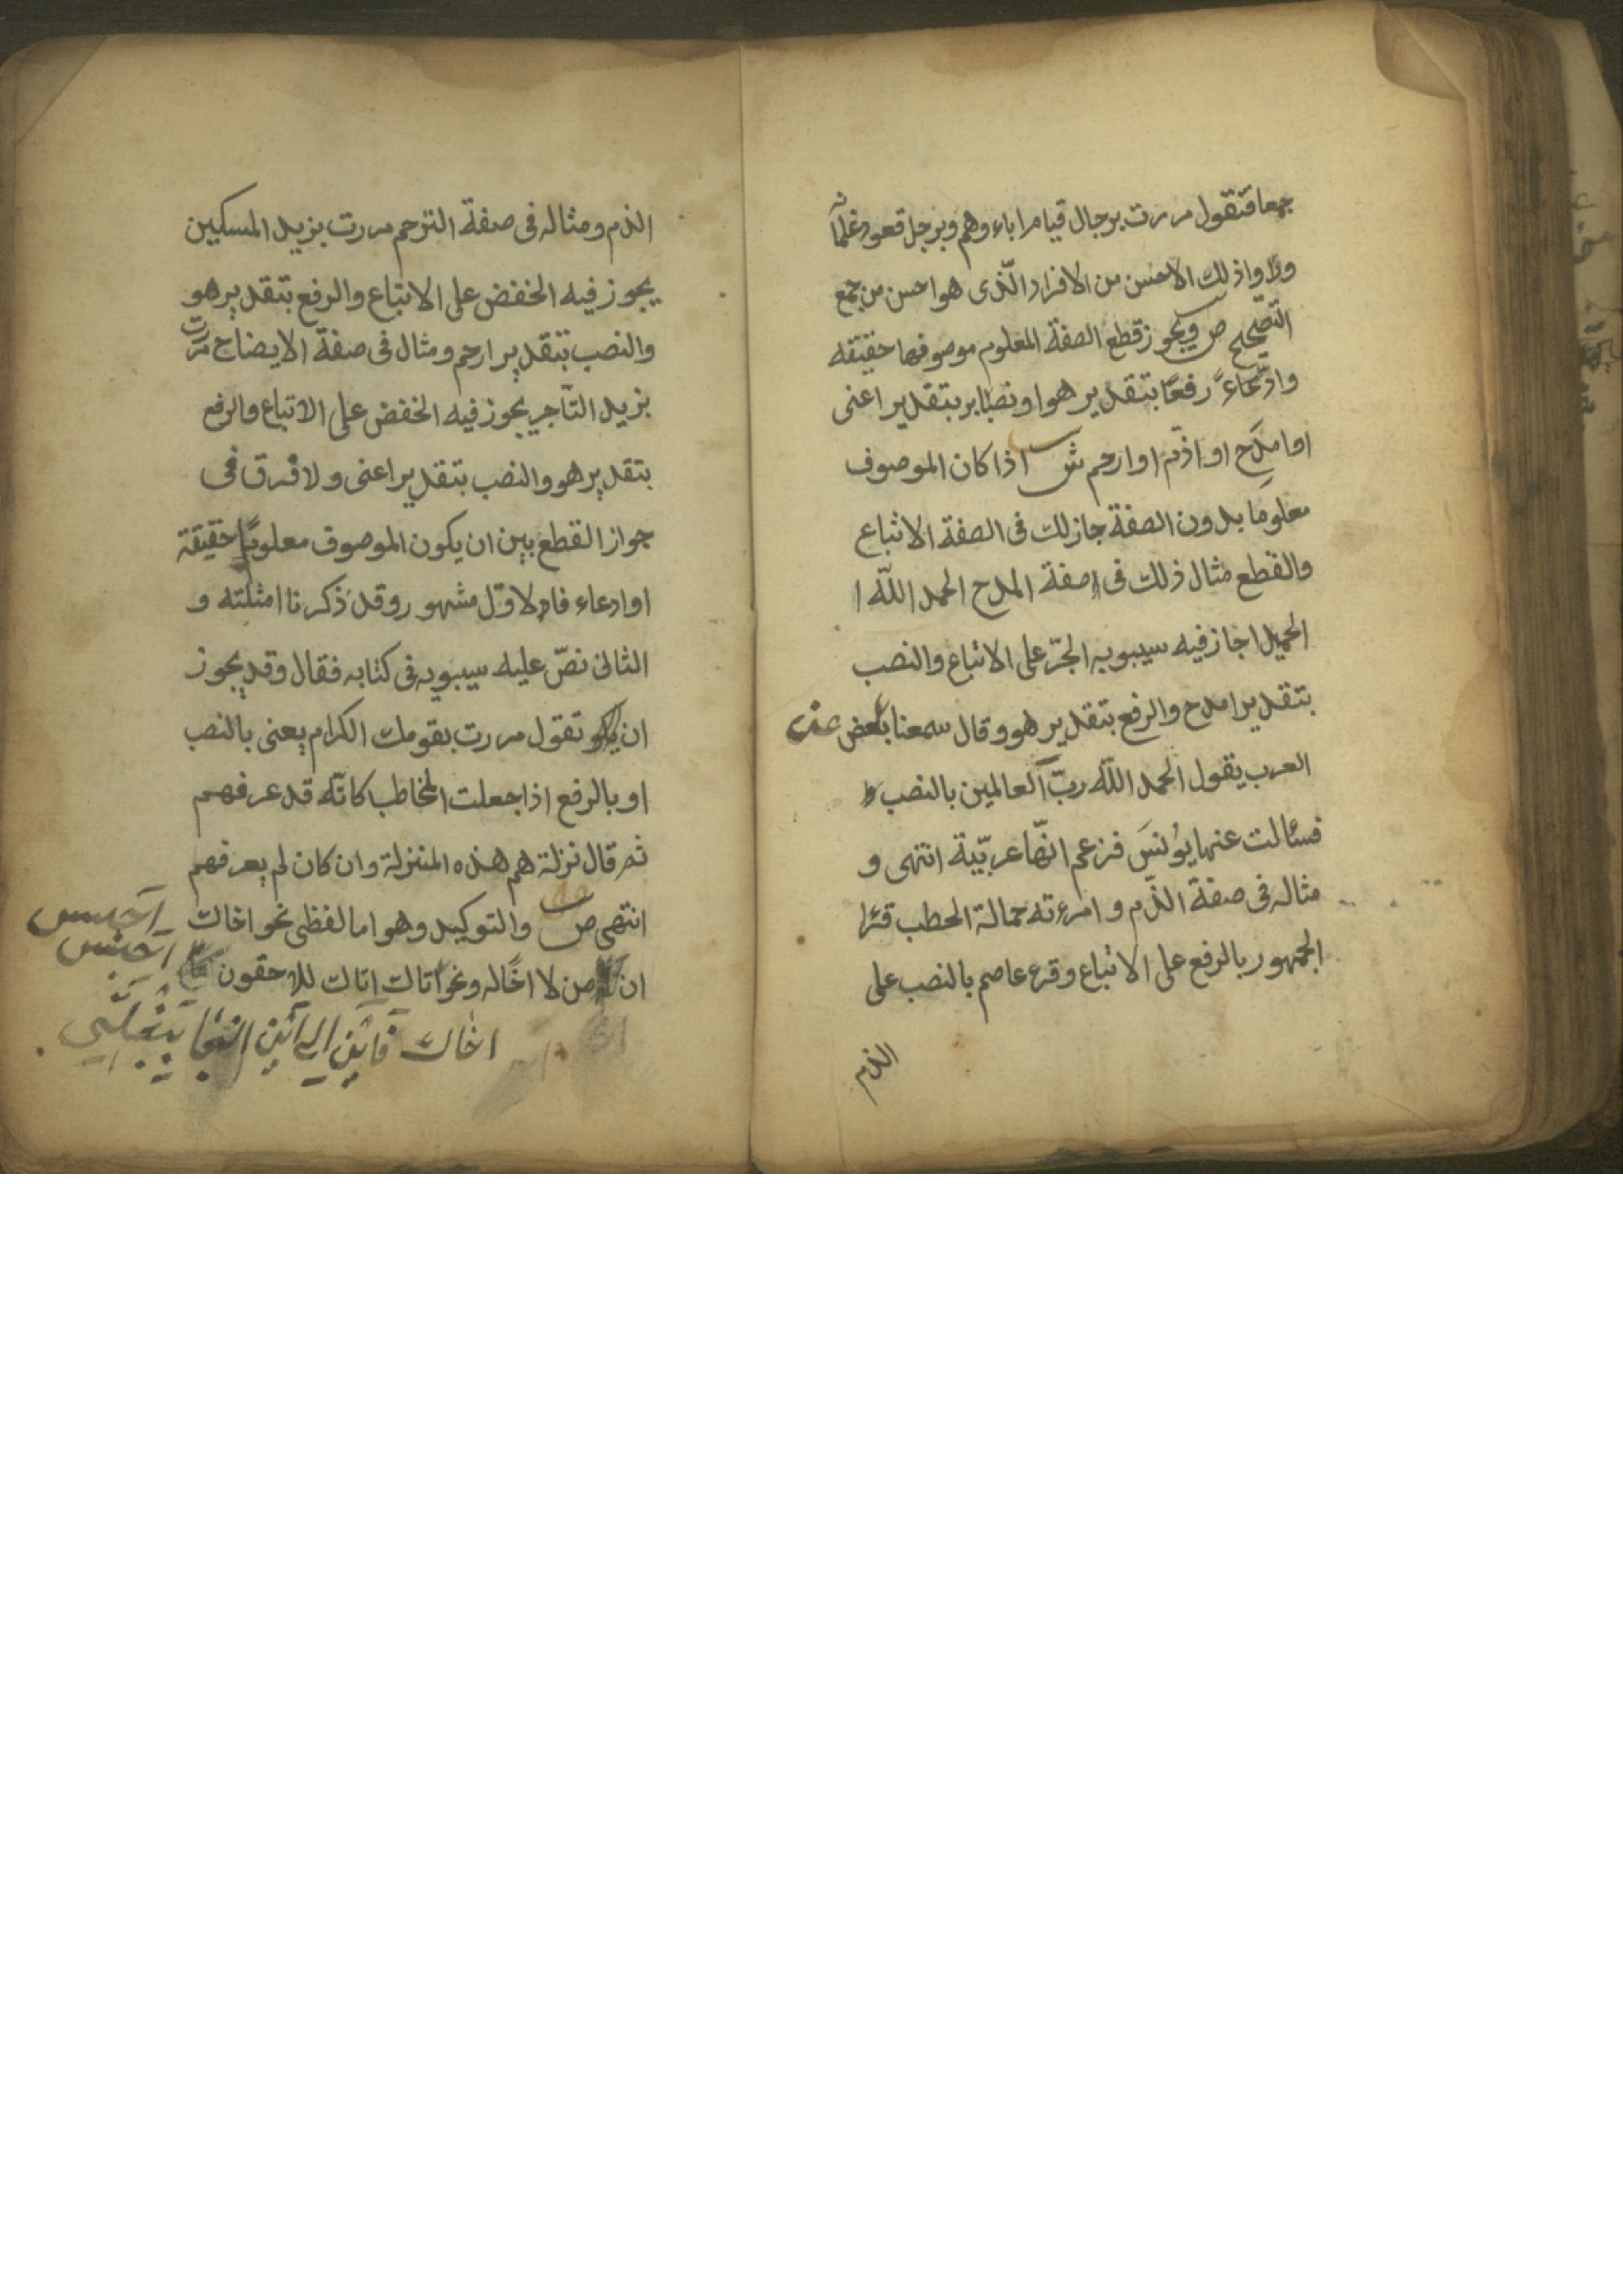 جمعا فتقول مررت برجال قيام اباءوهم وبرجل قعود غلمانه
وراواذلك الاحسن من الافراد الّذى هو احسن من جمع
التصّحيح ص ويجوز قطع الصفة المعلوم موصوفها حقيقه
وادّعاءً رفعًا بتقدير هو اونصبًا بتقدير اعنى
او امدح او اذّم او ارحم ش اذا كان الموصوف
معلومًا بدون الصفة جاز لك فى الصفة الاتباع
والقطع مثال ذلك فى صفة المدح الحمد اللّه
الحميد اجاز فيه سيبويه الجّر على الاتباع والنصب
بتقدير امدح والرفع بتقدير هو وقال سمعنا بعض
العرب يقول الحمد اللّه ربّ العالمين بالنصب
فسئالت عنها يونسَ فزعم انّها عربّية انتهى و
مثاله فى صفة الذّم وامرءته حمالة الحطب قرا
الجمهور بالرفع على الاتباع وقرء عاصم بالنصب على
الذم
الذم ومثاله فى صفة الترحم مررت بزيد المسكين
يجوز فيه الخفض على الاتباع والرفع بتقدير هو
والنصب بتقدير ارحم ومثال فى صفة الايضاح مررت
بزيد التّاجر يجوز فيه الخفض على الاتباع والرفع
بتقدير هو والنصب بتقدير اعنى ولا فرق فى
جواز القطع بين ان يكون الموصوف معلومًا حقيقة
او ادعاء فالاوّل مشهور وقد ذكرنا امثلته و
الثانى نصّ عليه سيبويه فى كتابه فقال وقد يجوز
ان تقول مررت بقومك الكرام يعنى بالنصب
او بالرفع اذا جعلت المخاطب كانّه قد عرفهم
ثم قال نزلة هم هذه المنزلة وان كان لم يعرفهم
انتهى ص والتوكيد وهو اما لفظى نحو اخاك
ان من لا اخًا له ونحو اتاك اتاك للاحقون
احبس
احبس
اخاك فاين الى اين النجا ببغلتى